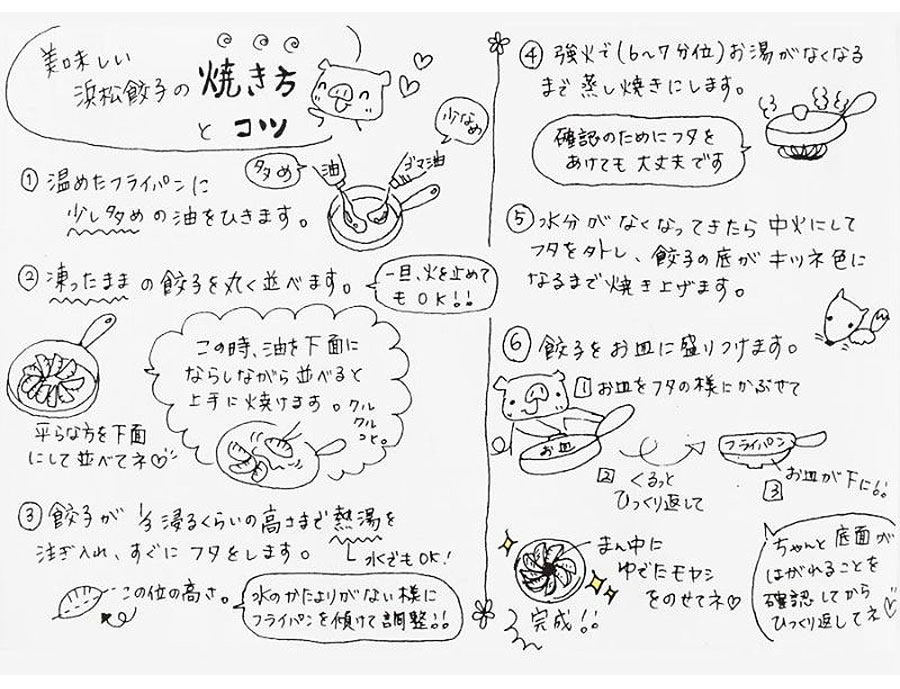 美味しい
浜松餃子の 焼き方
と コツ
少なめ
多め
油
ゴマ油
① 温めたフライパンに
少し多めの油をひきます。
② 凍ったままの餃子を丸く並べます。
一旦、火を止めて
もOK!!
この時、油を下面に
ならしながら並べると
上手に焼けます。クル
クル
っと。
平らな方を下面
にして並べてネ♡
③ 餃子が 1/3 浸るくらいの高さまで熱湯を
注ぎ入れ、すぐにフタをします。
水でもOK!
この位の高さ。
水のかたよりがない様に
フライパンを傾けて調整!!
④ 強火で(6〜7分位)お湯がなくなる
まで蒸し焼きにします。
確認のためにフタを
あけても大丈夫です
⑤ 水分がなくなってきたら中火にして
フタを外し、餃子の底がキツネ色に
なるまで焼き上げます。
⑥ 餃子をお皿に盛りつけます。
1 お皿をフタの様にかぶせて
お皿
2 くるっと
ひっくり返して
フライパン
3 お皿が下に!!
まん中に
ゆでたモヤシ
をのせてネ♡
完成!!
ちゃんと底面が
はがれることを
確認してから
ひっくり返してネ♡